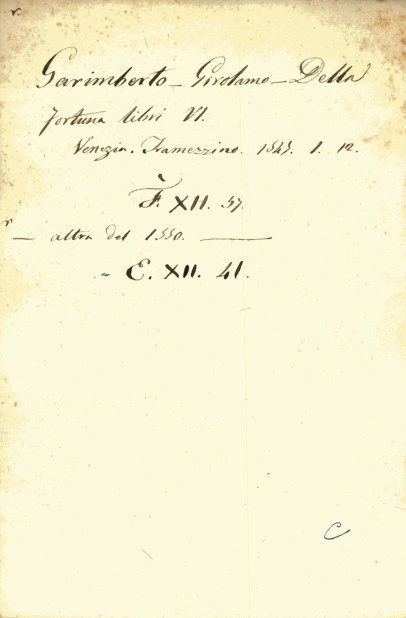 v.
Garimberto - Girolamo - Della
Fortuna libri VI.
Venezia. Tramezzino. 1547. 1. 12.
F. XII. 37.
— altra del 1550. —
- E. XII. 41.
C